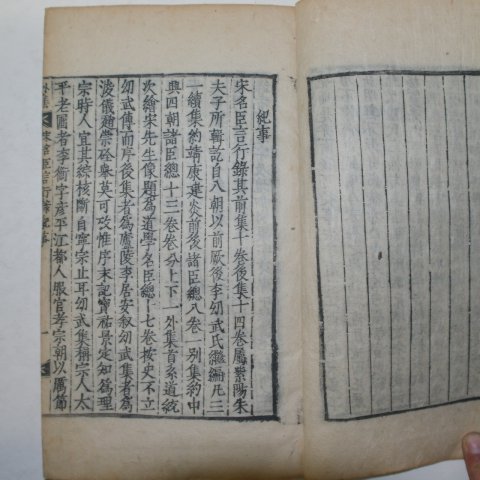 紀事
宋名臣言行錄其前集十卷後集十四卷屬紫陽朱
夫子所輯訖自八朝以前厥後李幼武氏繼編凡三
一續集約靖康建炎前後諸臣總八卷一別集約中
興四朝諸臣總十三卷卷分上下一外集首系道統
次繪宋先生像題爲道學名臣總一七卷按史不立
幼武傳而序後集者爲廬陵李居安叙幼武集者爲
浚儀趙崇硂舉莫可攷惟序末記寶祐景定知爲理
宗時人宜其綜核斷自寧宗止耳幼武集稱宗人太
平老圃者李衡字彥平江都人服官孝宗朝以厲節
宋名臣言行錄 紀事 一